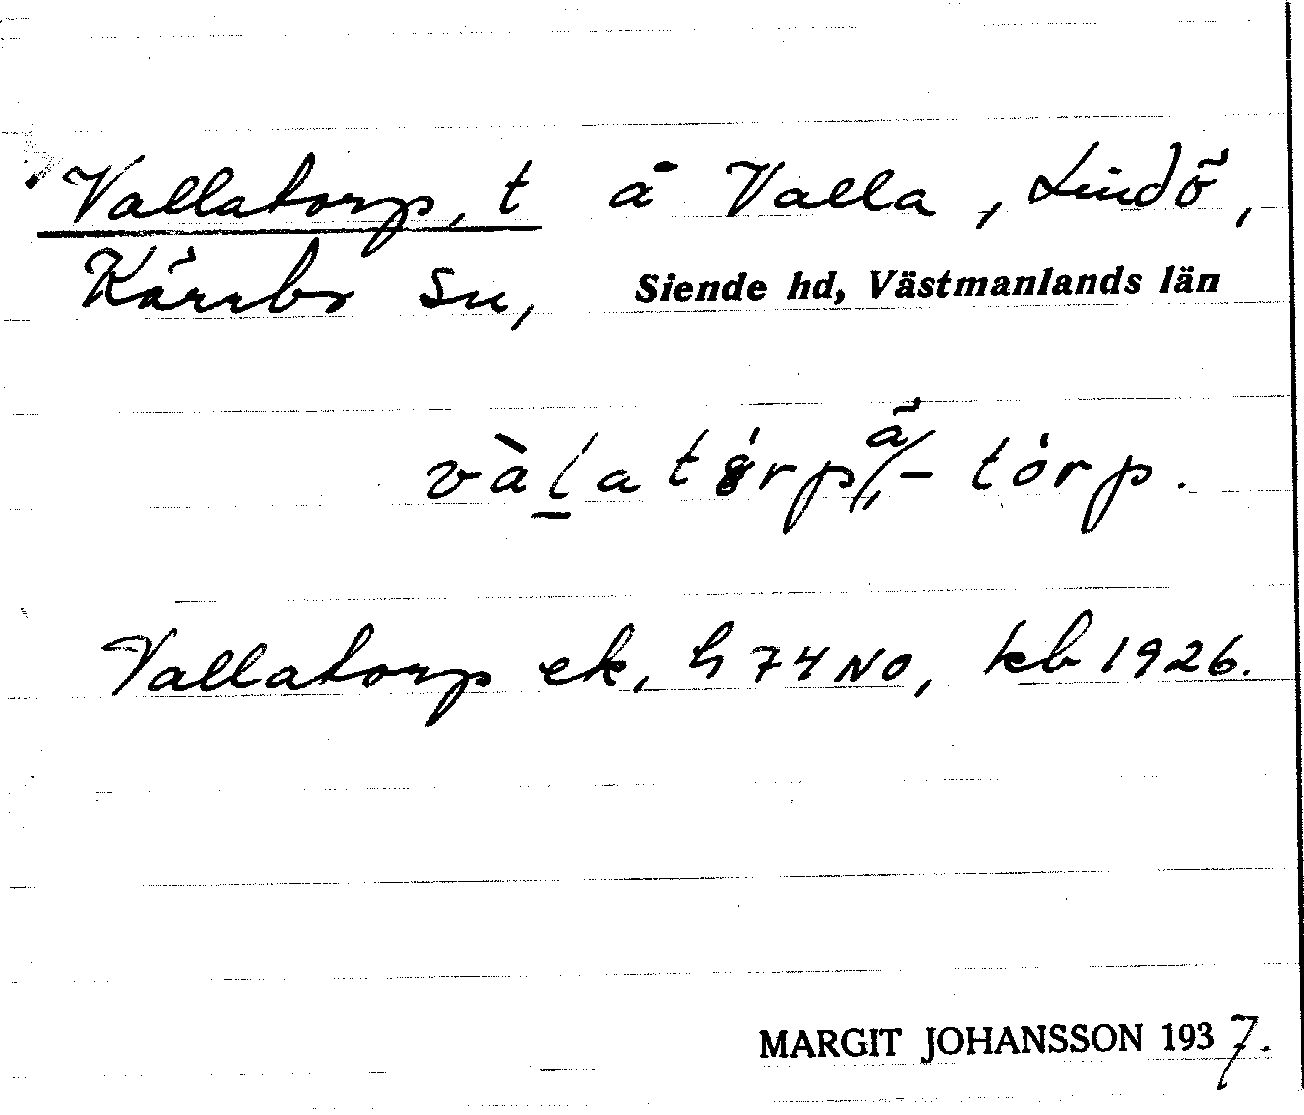 Vallatorp, t å Valla, Lindö,
Kärrbo sn, Siende hd, Västmanlands län
vàl̲atórp, -tórp.
Vallatorp ek, h 74 NO, kb 1926.
MARGIT JOHANSSON 1937.